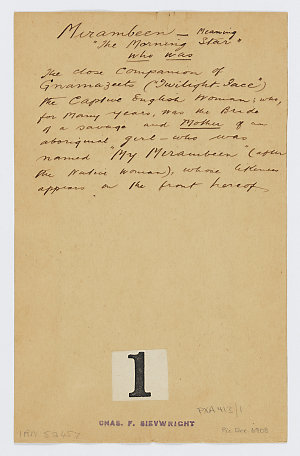 Mirambeen — Meaning
"The Morning Star"
who was
The close Companion of
Gnamazeets ("Twilight-Face")
the Captive English Woman; who,
for many years, was the Bride
of a savage and Mother of an
aboriginal girl — who was
named "My Mirambeen" (after
the Native woman), whose likeness
appears on the front hereof
1
PXA 413/1
CHAS. F. SIEVWRIGHT
Pic. Acc 6908